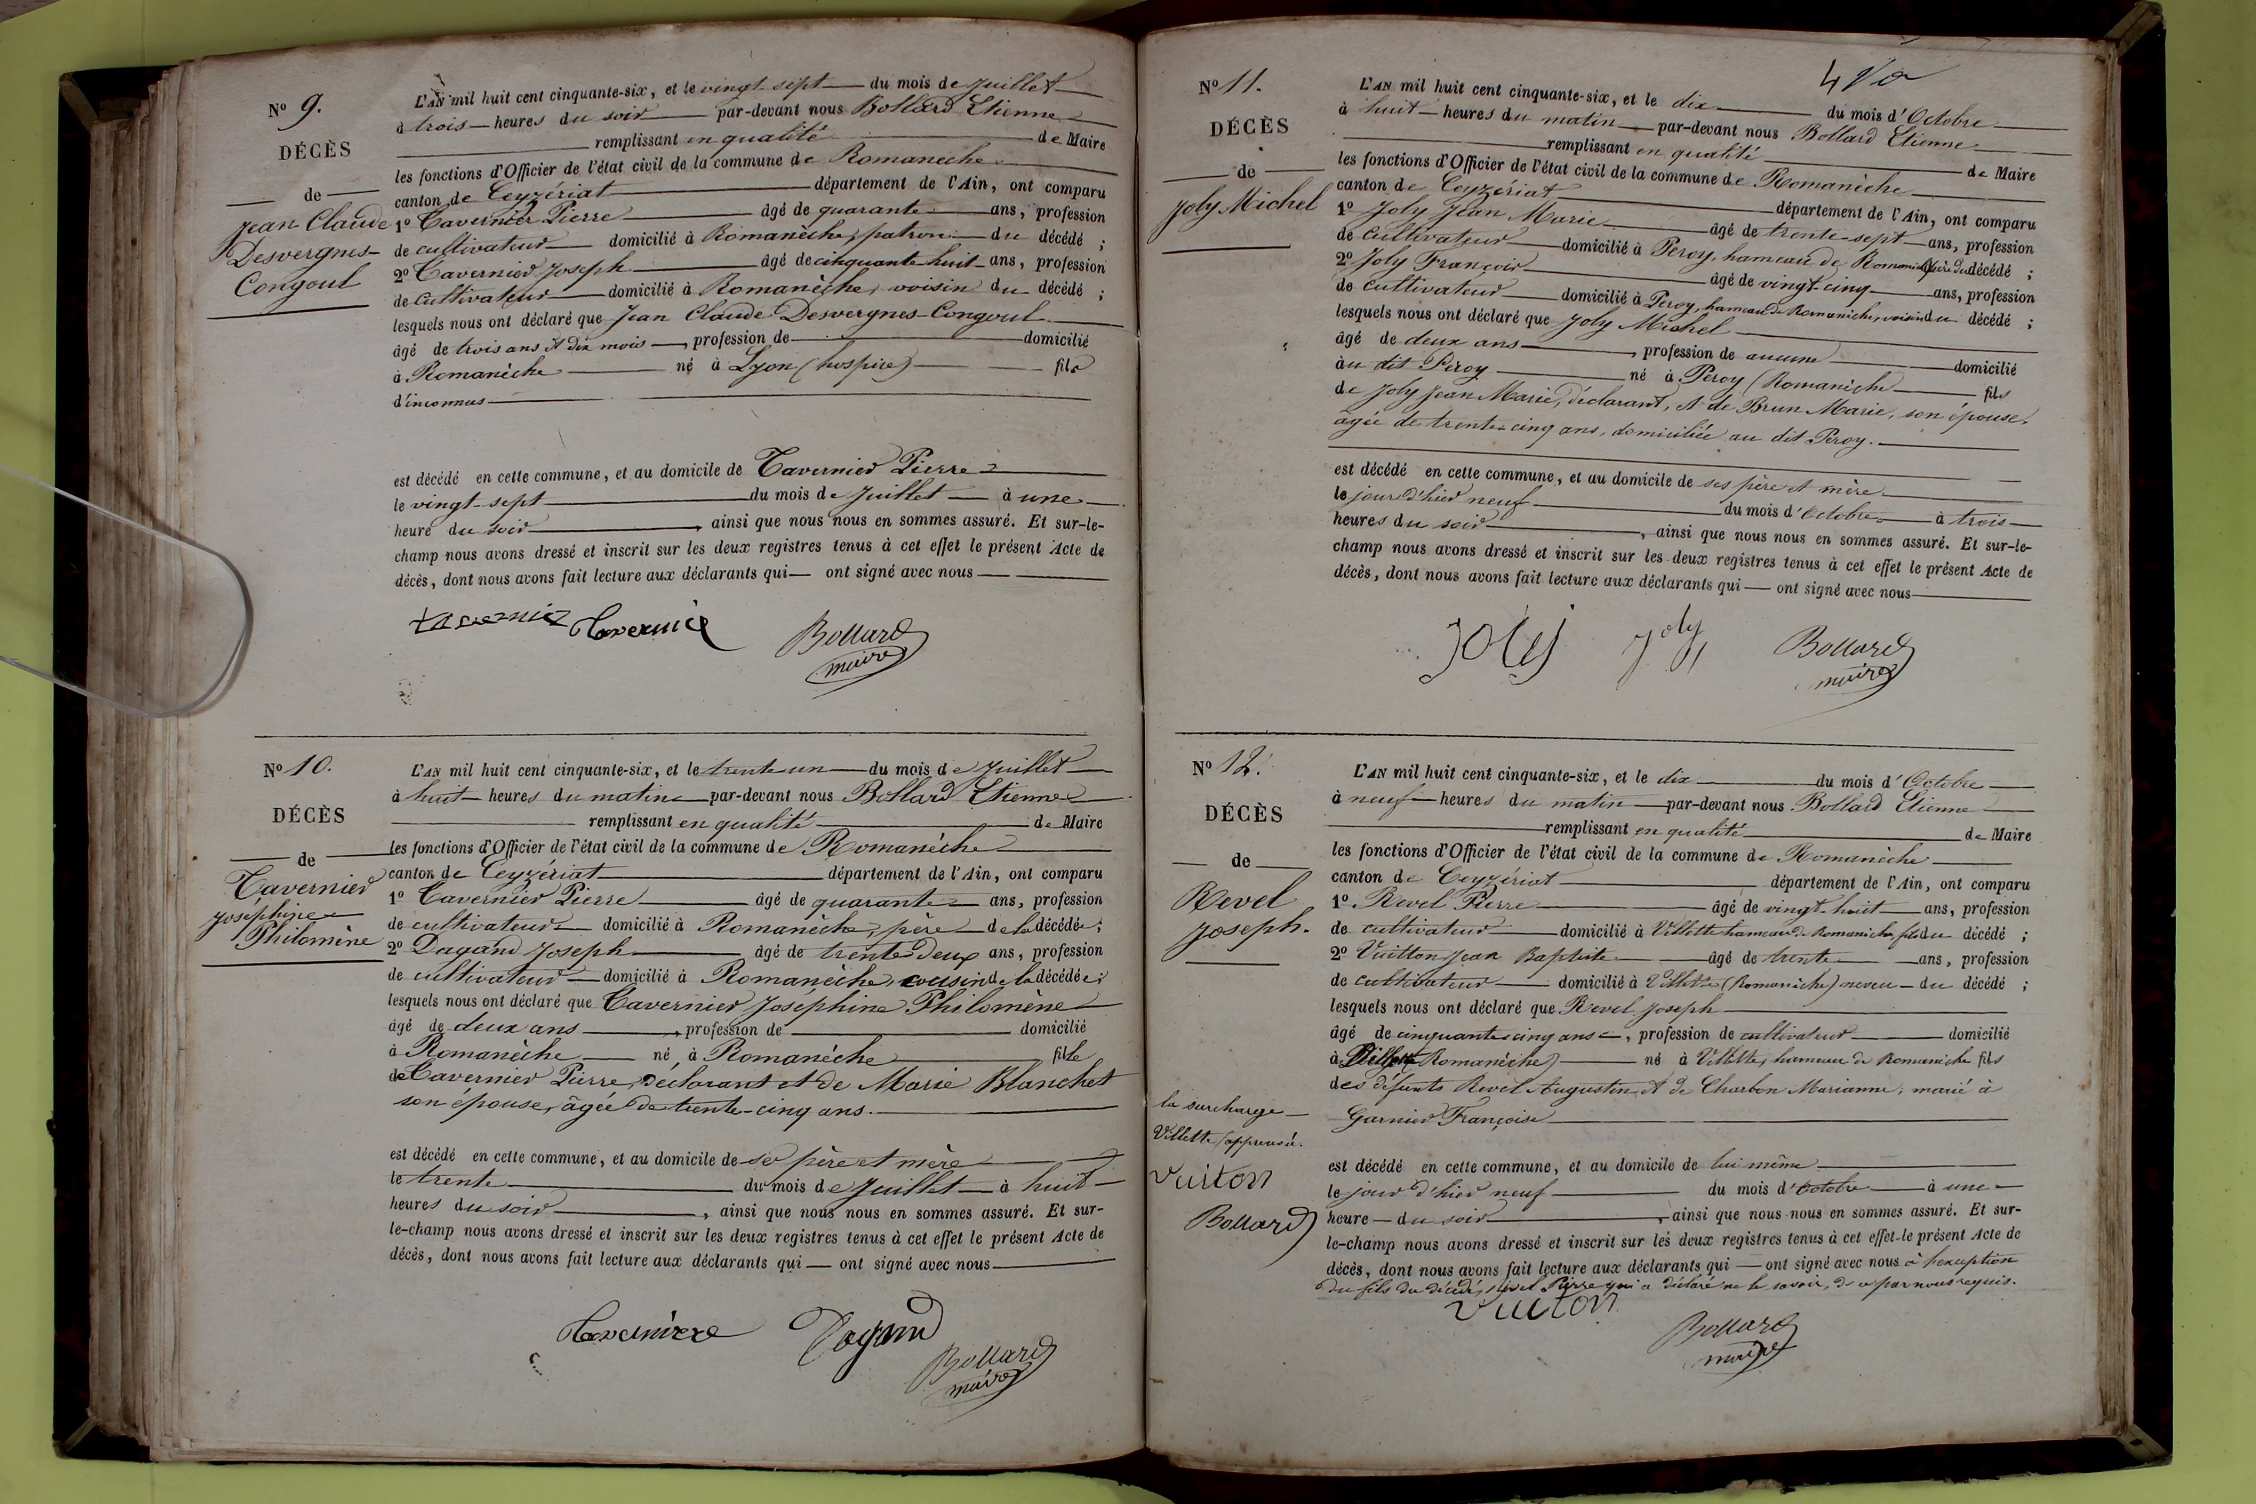 No 9.
DÉCÈS
de
Jean Claude
Desvergnes-
Congoul
L'AN mil huit cent cinquante-six, et le vingt sept du mois de Juillet
à trois heures du soir par-devant nous Bollard Etienne
remplissant en qualité de Maire
les fonctions d'Officier de l'état civil de la commune de Romanèche
canton de Ceyzériat département de l'Ain, ont comparu
1o Tavernier Pierre âgé de quarante ans, profession
de cultivateur domicilié à Romanèche, patron du décédé ;
2o Tavernier Joseph âgé de cinquante huit ans, profession
de cultivateur domicilié à Romanèche, voisin du décédé ;
lesquels nous ont déclaré que Jean Claude Desvergnes-Congoul
âgé de trois ans et dix mois, profession de domicilié
à Romanèche né à Lyon (hospice) fils
d'inconnus
est décédé en cette commune, et au domicile de Tavernier Pierre
le vingt-sept du mois de Juillet à une
heure du soir, ainsi que nous nous en sommes assuré. Et sur-le-
champ nous avons dressé et inscrit sur les deux registres tenus à cet effet le présent Acte de
décès, dont nous avons fait lecture aux déclarants qui ont signé avec nous
Tavernier Tavernié Bollard
maire
No 10.
DÉCÈS
de
Tavernier
Joséphine
Philomène
L'AN mil huit cent cinquante-six, et le trente un du mois de Juillet
à huit heures du matin par-devant nous Bollard Etienne
remplissant en qualité de Maire
les fonctions d'Officier de l'état civil de la commune de Romanèche
canton de Ceyzériat département de l'Ain, ont comparu
1o Tavernier Pierre âgé de quarante ans, profession
de cultivateur domicilié à Romanèche, père de la décédée ;
2o Dagand Joseph âgé de trente deux ans, profession
de cultivateur domicilié à Romanèche, cousin de la décédée ;
lesquels nous ont déclaré que Tavernier Joséphine Philomène
âgé de deux ans, profession de domicilié
à Romanèche né à Romanèche fille
de Tavernier Pierre, déclarant et de Marie Blanchet
son épouse, âgée de trente-cinq ans.
est décédé en cette commune, et au domicile de ses père et mère
le trente du mois de Juillet à huit
heures du soir, ainsi que nous nous en sommes assuré. Et sur-
le-champ nous avons dressé et inscrit sur les deux registres tenus à cet effet le présent Acte de
décès, dont nous avons fait lecture aux déclarants qui ont signé avec nous
Dagand
Bollard
maire
4 Vo
No 11.
DÉCÈS
de
Joly Michel
L'AN mil huit cent cinquante-six, et le dix du mois d'Octobre
à huit heures du matin par-devant nous Bollard Etienne
remplissant en qualité de Maire
les fonctions d'Officier de l'état civil de la commune de Romanèche
canton de Ceyzériat département de l'Ain, ont comparu
1o Joly Jean Marie âgé de trente-sept ans, profession
de cultivateur domicilié à Peroy, hameau de Romanèche, père du décédé ;
2o Joly François âgé de vingt-cinq ans, profession
de cultivateur domicilié à Peroy, hameau de Romanèche, voisin du décédé ;
lesquels nous ont déclaré que Joly Michel
âgé de deux ans, profession de aucune domicilié
àu dit Peroy né à Peroy (Romanèche fils
de Joly Jean Marie, déclarant, et de Brun Marie, son épouse,
âgée de trente-cinq ans, domiciliée au dit Peroy.
est décédé en cette commune, et au domicile de ses père et mère
le jour d'hier neuf du mois d'Octobre à trois
heures du soir, ainsi que nous nous en sommes assuré. Et sur-le-
champ nous avons dressé et inscrit sur les deux registres tenus à cet effet le présent Acte de
décès, dont nous avons fait lecture aux déclarants qui ont signé avec nous
Joly Joly Bollard
maire
No 12.
DÉCÈS
de
Revel
Joseph.
la surcharge
Villette approuvée.
Vuiton
Bollard
L'AN mil huit cent cinquante-six, et le dix du mois d'Octobre
à neuf heures du matin par-devant nous Bollard Etienne
remplissant en qualité de Maire
les fonctions d'Officier de l'état civil de la commune de Romanèche
canton de Ceyzériat département de l'Ain, ont comparu
1o Revel Pierre âgé de vingt-huit ans, profession
de cultivateur domicilié à Villette hameau de Romanèche, fils du décédé ;
2o Vuitton Jean Baptiste âgé de trente ans, profession
de cultivateur domicilié à Villette (Romanèche) neveu du décédé ;
lesquels nous ont déclaré que Revel Joseph
âgé de cinquante-cinq ans, profession de cultivateur domicilié
à Villette (Romanèche) né à Villette, hameau de Romanèche fils
des défunts Revel Augustin et de Charbon Marianne, marié à
Garnier Françoise
est décédé en cette commune, et au domicile de lui même
le jour d'hier neuf du mois d'Octobre à une
heure du soir, ainsi que nous nous en sommes assuré. Et sur-
le-champ nous avons dressé et inscrit sur les deux registres tenus à cet effet le présent Acte de
décès, dont nous avons fait lecture aux déclarants qui ont signé avec nous à l'exception
du fils du décédé, Revel Pierre qui a déclaré ne le savoir, de ce par nous requis.
Vuiton
Bollard
maire